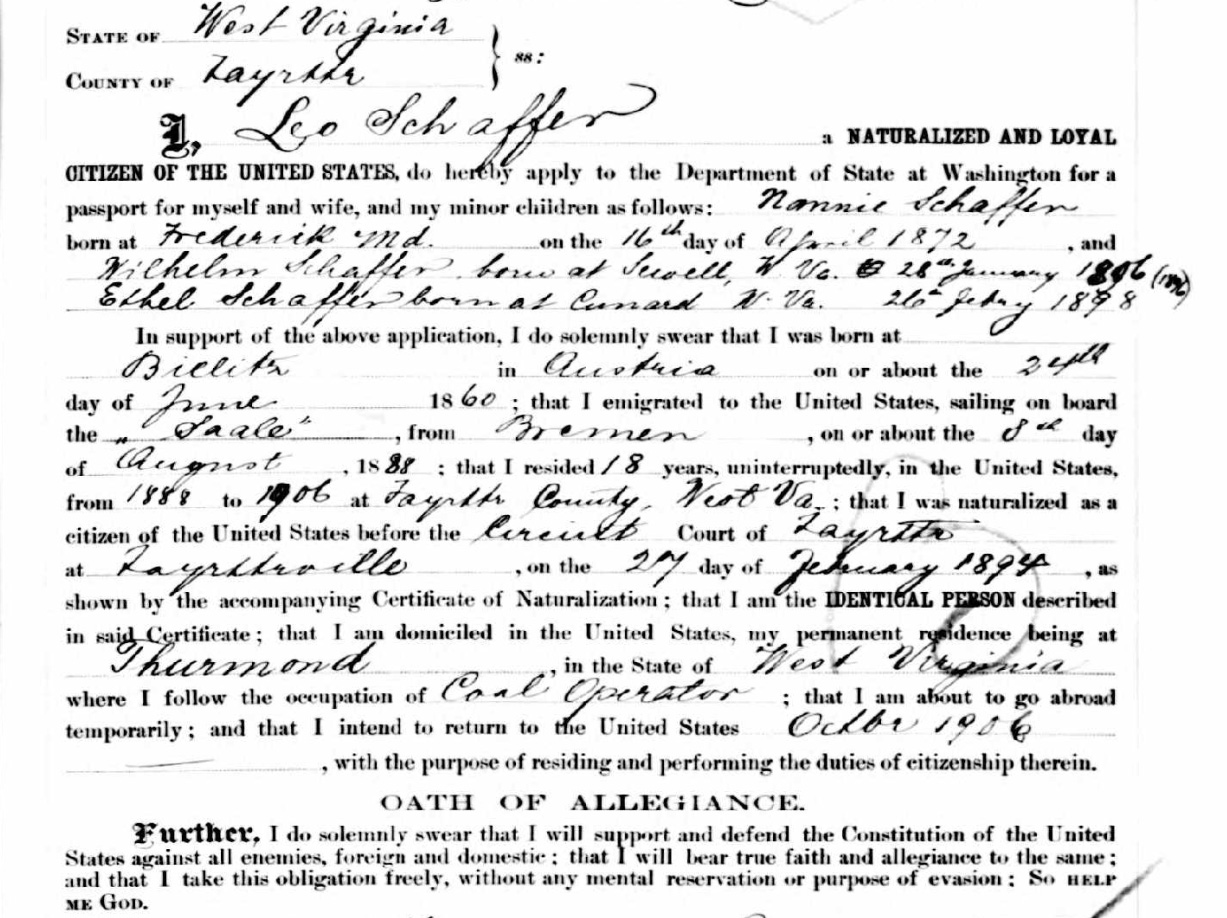 STATE OF West Virginia
COUNTY OF Fayette } ss:
I, Leo Schaffer a NATURALIZED AND LOYAL
CITIZEN OF THE UNITED STATES, do hereby apply to the Department of State at Washington for a
passport for myself and wife, and my minor children as follows: Nannie Schaffer
born at Frederick Md. on the 16th day of April 1872, and
Wilhelm Schaffer born at Sewell, W. Va. 28th January 1896 (1896)
Ethel Schaffer born at Cunard W. Va. 26th Febry 1898
In support of the above application, I do solemnly swear that I was born at
Bielitz in Austria on or about the 24th
day of June 1860; that I emigrated to the United States, sailing on board
the "Saale", from Bremen, on or about the 8th day
of August, 1888; that I resided 18 years, uninterruptedly, in the United States,
from 1888 to 1906 at Fayette County, West Va.; that I was naturalized as a
citizen of the United States before the Circuit Court of Fayette
at Fayetteville, on the 27 day of February 1894, as
shown by the accompanying Certificate of Naturalization; that I am the IDENTICAL PERSON described
in said Certificate; that I am domiciled in the United States, my permanent residence being at
Thurmond, in the State of West Virginia
where I follow the occupation of Coal Operator; that I am about to go abroad
temporarily; and that I intend to return to the United States Octbr 1906
, with the purpose of residing and performing the duties of citizenship therein.
OATH OF ALLEGIANCE.
Further, I do solemnly swear that I will support and defend the Constitution of the United
States against all enemies, foreign and domestic; that I will bear true faith and allegiance to the same;
and that I take this obligation freely, without any mental reservation or purpose of evasion: SO HELP
ME GOD.